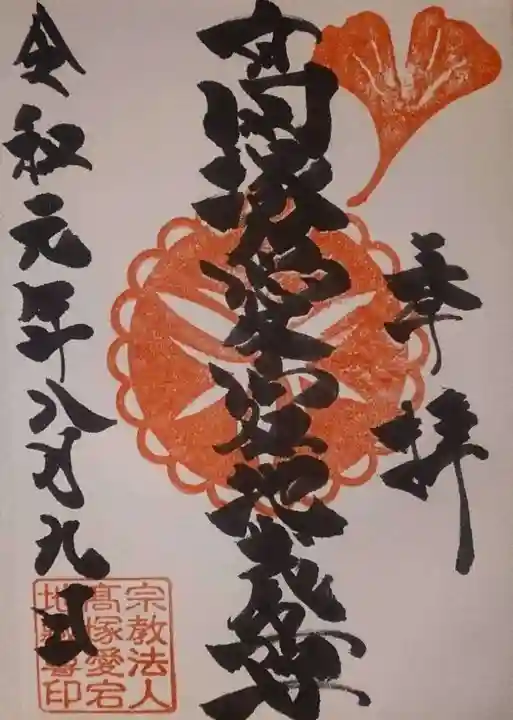 奉拝
高塚愛宕地蔵尊
令和元年八月九日
宗教法人
高塚愛宕
地蔵尊印